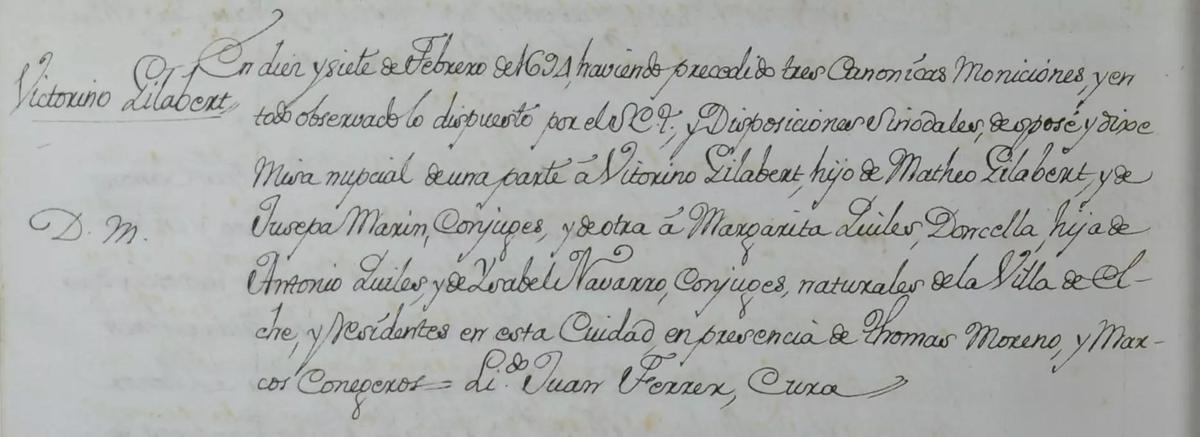 Victorino Gilabert
D. M.
En diez y siete de Febrero de 1694, haviendo precedido tres Canonicas Moniciones, y en
todo observado lo dispuesto por el S.C.T., y Disposiciones Sinodales, desposé y dixe
Misa nupcial de una parte á Vitorino Gilabert, hijo de Matheo Gilabert, y de
Jusepa Marin, Conjuges, y de otra á Margarita Quiles, Doncella, hija de
Antonio Quiles, y de Ysabel Navarro, Conjuges, naturales de la Villa de El-
che, y residentes en esta Cuidad, en presencia de Thomas Moreno, y Mar-
cos Conegeros = Li.do Juan Ferrer, Cura